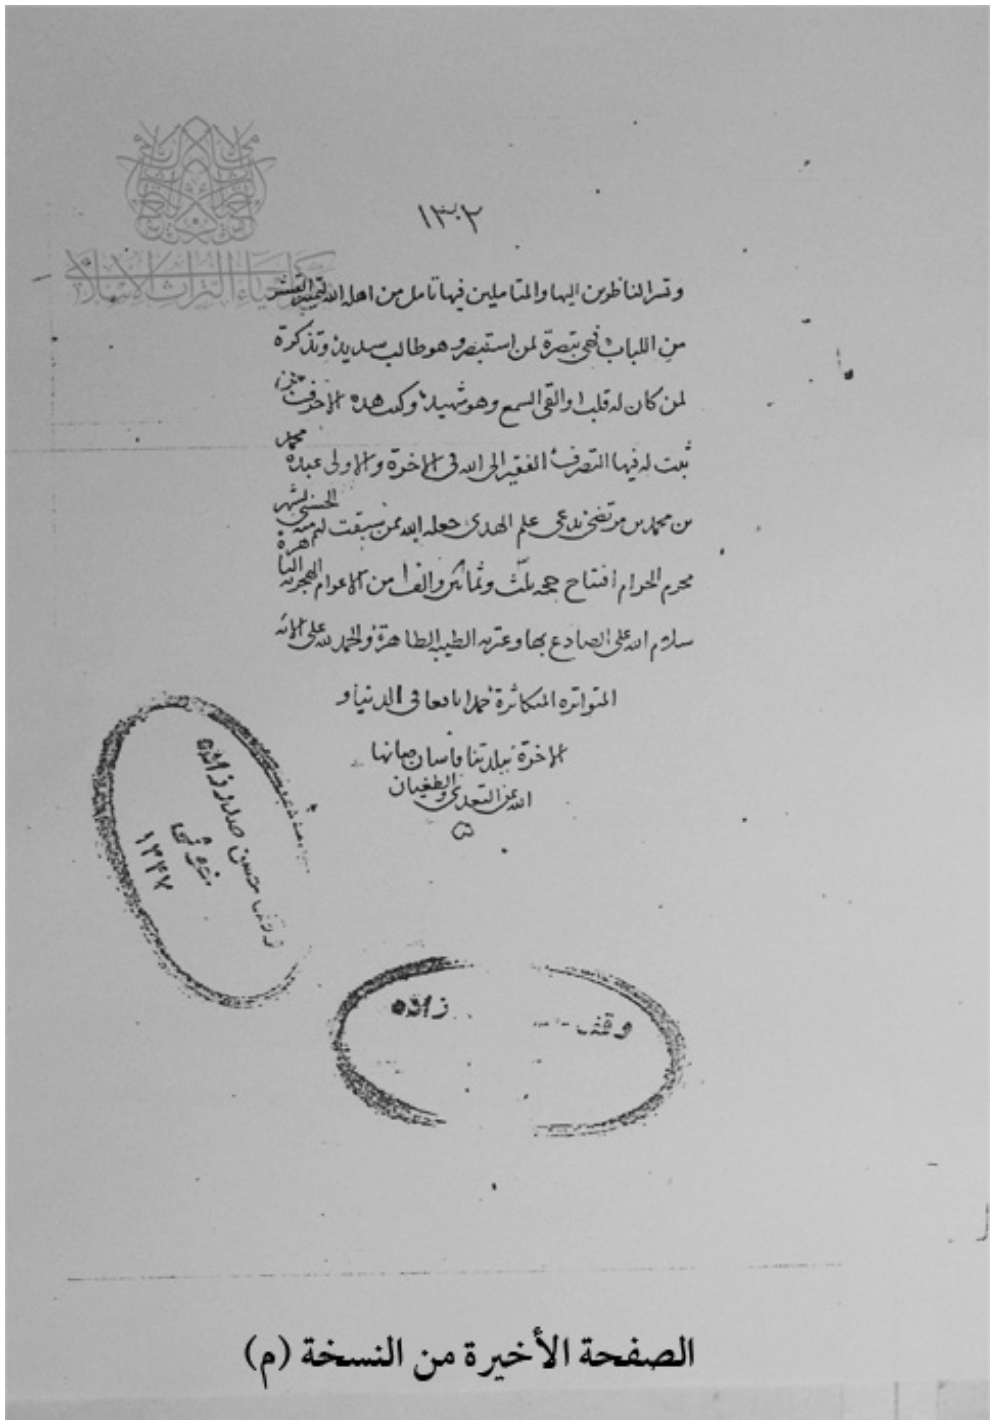 ١٣٠٢
مركز إحياء التراث الإسلامي
وتسر الناظرين اليها والمتاملين فيها تامل من اهله الله لتميز القشر
من اللباب فهي تبصرة لمن استبصر وهو طالب سديد وتذكرة
لمن كان له قلب او القى السمع وهو شهيد وكتب هذه الاحرف
ثبت له فيها التصرف الفقير الى الله في الاخرة والاولى عبده محمد
بن محمد بن مرتضى يدعى علم الهدى جعله الله ممن سبقت لهم منه الحسنى لشهر
محرم الحرام افتتاح حجة ثلث وثمانين والف من الاعوام الهجرية
سلام الله على الصادع بها وعترته الطيبة الطاهرة والحمد لله على الائه
المتواترة المتكاثرة حمدا نافعا في الدنيا و
الاخرة ببلدتنا قاسان صانها
الله عن التعدي والطغيان
وقف حسن صدر زاده
١٣٤٧
وقف زاده
الصفحة الأخيرة من النسخة (م)